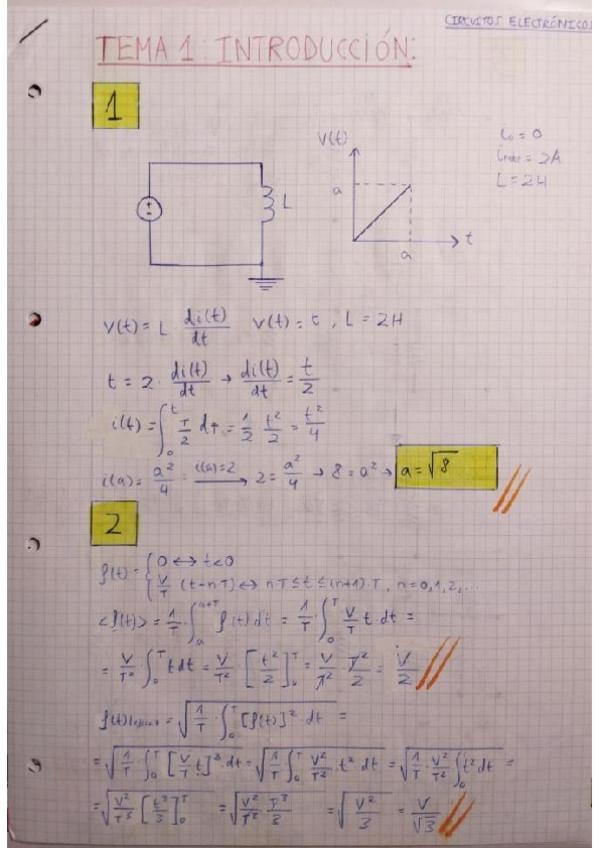 CIRCUITOS ELECTRÓNICOS
TEMA 1 INTRODUCCIÓN:
1
V(t)
a
a
t
L
i₀ = 0
iₘₐₓ = 2A
L = 2H
V(t) = L · di(t)/dt V(t) = t , L = 2H
t = 2 · di(t)/dt → di(t)/dt = t/2
i(t) = ∫₀ᵗ τ/2 dτ = 1/2 t²/2 = t²/4
i(a) = a²/4 i(a)=2 → 2 = a²/4 → 8 = a² → a = √8
2
f(t) = { 0 ↔ t<0
V/T (t-nT) ↔ nT ≤ t ≤ (n+1)·T , n=0,1,2,...
<f(t)> = 1/T · ∫ₐᵃ⁺ᵀ f(t) dt = 1/T · ∫₀ᵀ V/T t dt =
= V/T² · ∫₀ᵀ t dt = V/T² · [t²/2]₀ᵀ = V/T² T²/2 = V/2
= √(1/T · ∫₀ᵀ [f(t)]² dt) =
= √(1/T · ∫₀ᵀ [V/T t]² dt) = √(1/T ∫₀ᵀ V²/T² t² dt) = √(1/T V²/T² ∫₀ᵀ t² dt) =
= √(V²/T³ [t³/3]₀ᵀ) = √(V²/T³ T³/3) = √(V²/3) = V/√3